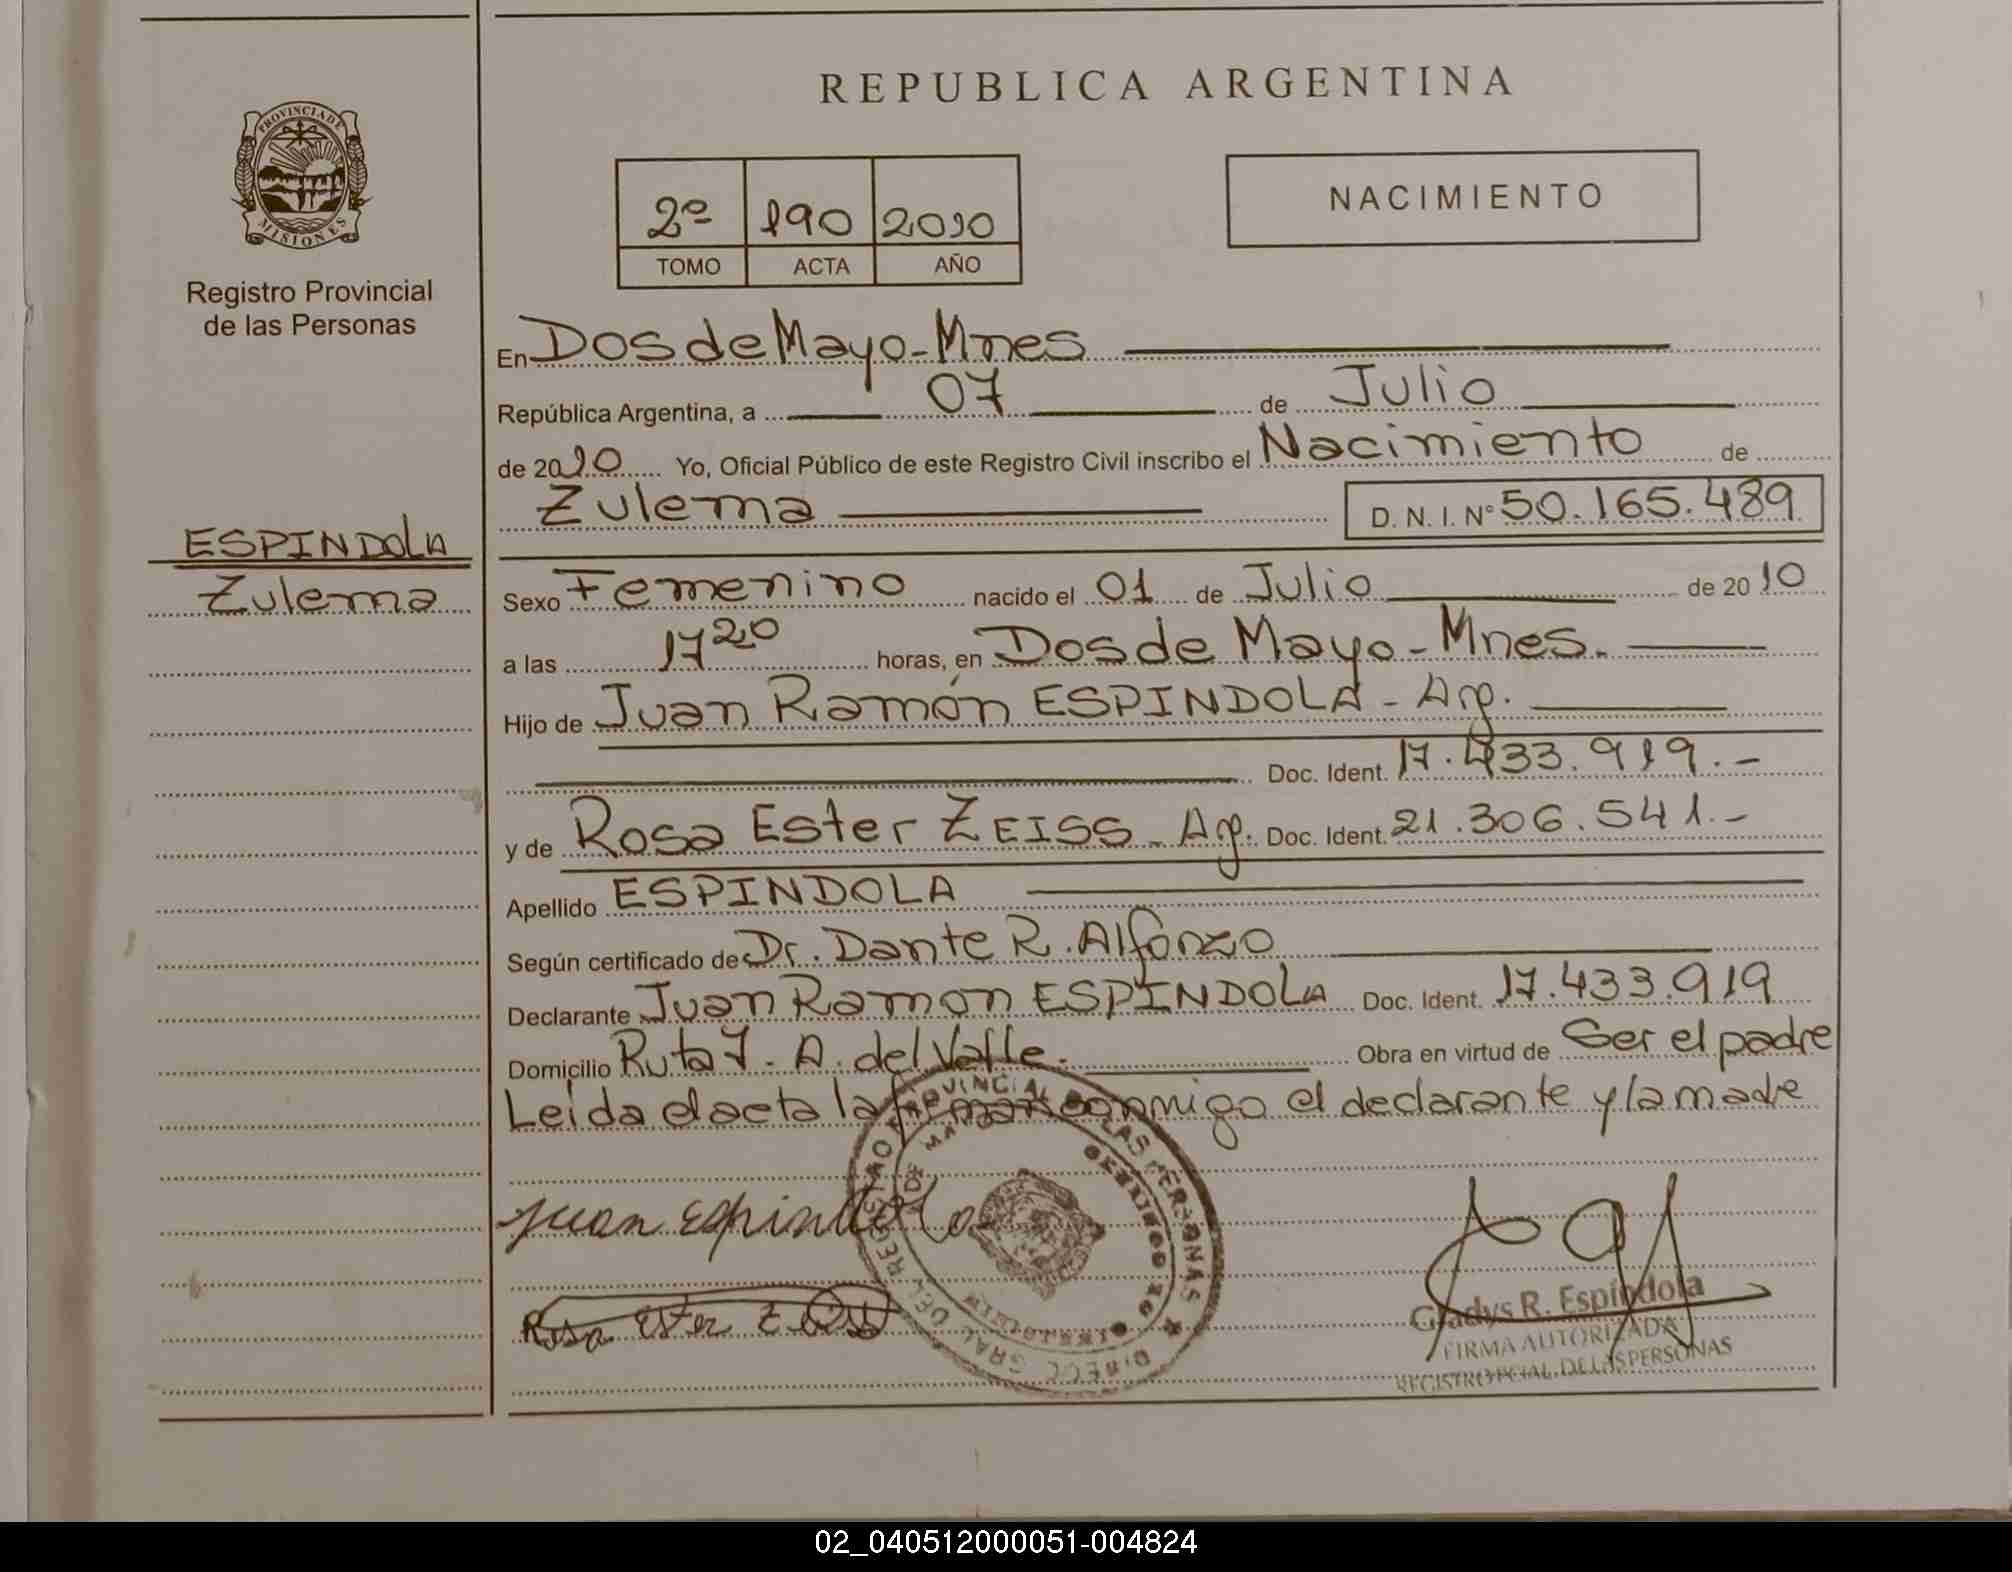 REPUBLICA ARGENTINA
PROVINCIA DE
MISIONES
Registro Provincial
de las Personas
2º 190 2010
TOMO ACTA AÑO
NACIMIENTO
En Dos de Mayo - Mnes
República Argentina, a 07 de Julio
de 2010 Yo, Oficial Público de este Registro Civil inscribo el Nacimiento de
Zulema D. N. I. Nº 50.165.489
ESPINDOLA
Zulema
Sexo Femenino nacido el 01 de Julio de 2010
a las 17 20 horas, en Dos de Mayo - Mnes.
Hijo de Juan Ramón ESPINDOLA - Arg.
Doc. Ident. 17.433.919.-
y de Rosa Ester ZEISS - Arg. Doc. Ident. 21.306.541.-
Apellido ESPINDOLA
Según certificado de Dr. Dante R. Alfonzo
Declarante Juan Ramon ESPINDOLA Doc. Ident. 17.433.919
Domicilio Ruta 7 - A. del Valle. Obra en virtud de Ser el padre
Leída el acta la firman conmigo el declarante y la madre
Juan Espindola
Rosa Ester Zeiss
DIRECC. GRAL. DEL REGISTRO PROVINCIAL DE LAS PERSONAS
Gladys R. Espíndola
FIRMA AUTORIZADA
REGISTRO PCIAL. DE LAS PERSONAS
02_040512000051-004824